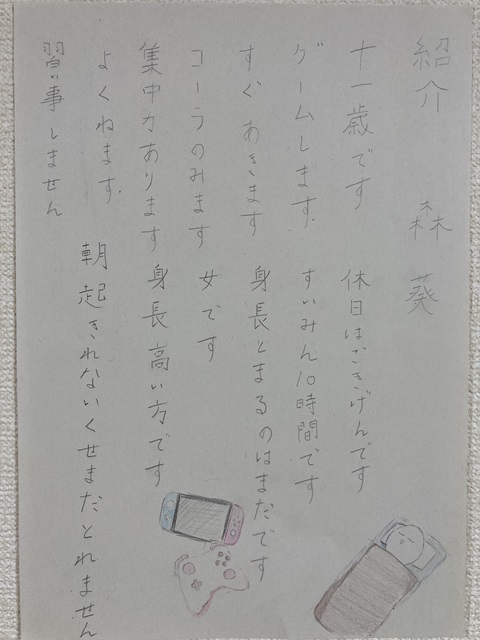 紹介 森 葵
十一歳です 休日はごきげんです
ゲームします すいみん10時間です
すぐ あきます 身長とまるのはまだです
コーラのみます 女です
集中力あります 身長高い方です
よくねます 朝起きれないくせまだとれません
習い事しません